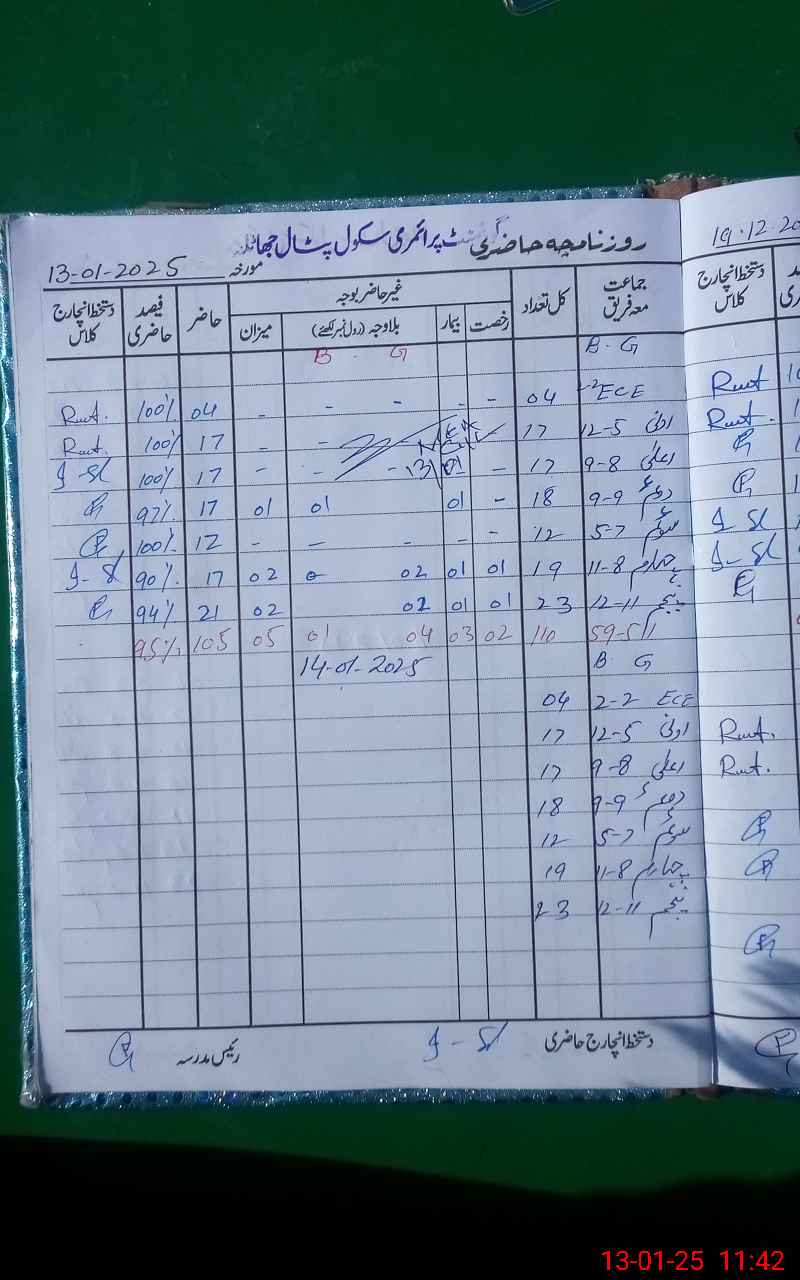 روزنامچہ حاضری گورنمنٹ پرائمری سکول پٹال
مورخہ 13-01-2025
جماعت معہ فریق کل تعداد غیر حاضر بوجہ حاضر فیصد حاضری دستخط انچارج کلاس
رخصت بیمار بلاوجہ (رول نمبر لکھئے) میزان
B. G B. G
2-2 ECE 04 - - - - - 04 100% Rmt.
ادنیٰ 12-5 17 - - 17 100% Rmt.
اعلیٰ 9-8 17 - - - - 17 100% J-Sl
دوئم 9-9 18 - 01 01 01 17 97%
سوئم 5-7 12 - - - - - 12 100%
چہارم 11-8 19 01 01 02 0 02 17 90% J-Sl
پنجم 12-11 23 01 01 02 02 21 94%
59-51 110 02 03 04 01 05 105 95%
B G 14-01-2025
2-2 ECE 04
ادنیٰ 12-5 17
اعلیٰ 9-8 17
دوئم 9-9 18
سوئم 5-7 12
چہارم 11-8 19
پنجم 12-11 23
دستخط انچارج حاضری J-Sl رئیس مدرسہ
19.12.20
دستخط انچارج کلاس
Rmt
Rmt.
J Sl
J-Sl
Rmt.
Rmt.
13-01-25 11:42